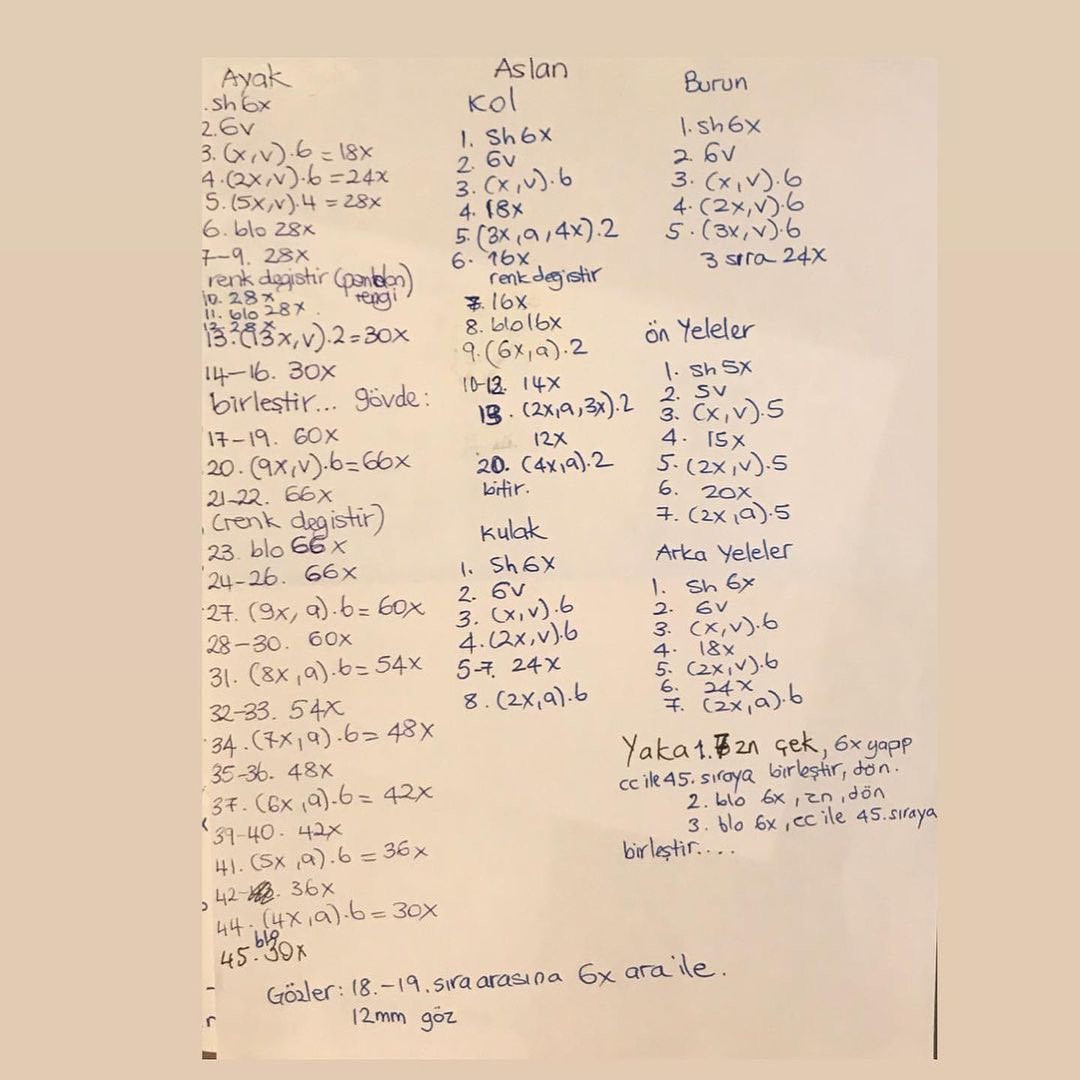 Aslan
Ayak
.sh 6x
2. 6v
3. (x,v).6 = 18x
4. (2x,v).6 = 24x
5. (5x,v).4 = 28x
6. blo 28x
7-9. 28x
renk degistir (pantolon rengi)
10. 28x
11. blo 28x.
12. 28x
13. (13x,v).2 = 30x
14-16. 30x
birleştir... gövde:
17-19. 60x
20. (9x,v).6 = 66x
21-22. 66x
(renk degistir)
23. blo 66x
24-26. 66x
27. (9x,a).6 = 60x
28-30. 60x
31. (8x,a).6 = 54x
32-33. 54x
34. (7x,a).6 = 48x
35-36. 48x
37. (6x,a).6 = 42x
39-40. 42x
41. (5x,a).6 = 36x
42- . 36x
44. (4x,a).6 = 30x
45. blo 30x
Kol
1. Sh 6x
2. 6v
3. (x,v).6
4. 18x
5. (3x,a,4x).2
6. 16x
renk degistir
7. 16x
8. blo 16x
9. (6x,a).2
10-12. 14x
13. (2x,a,3x).2
12x
20. (4x,a).2
bitir.
Kulak
1. Sh 6x
2. 6v
3. (x,v).6
4. (2x,v).6
5-7. 24x
8. (2x,a).6
Burun
1. sh 6x
2. 6v
3. (x,v).6
4. (2x,v).6
5. (3x,v).6
3 sıra 24x
ön Yeleler
1. Sh 5x
2. 5v
3. (x,v).5
4. 15x
5. (2x,v).5
6. 20x
7. (2x,a).5
Arka Yeleler
1. Sh 6x
2. 6v
3. (x,v).6
4. 18x
5. (2x,v).6
6. 24x
7. (2x,a).6
Yaka 1. 7 zn çek, 6x yapıp
cc ile 45. sıraya birleştir, dön.
2. blo 6x, zn, dön
3. blo 6x, cc ile 45. sıraya
birleştir....
Gözler: 18.-19. sıra arasına 6x ara ile.
12mm göz